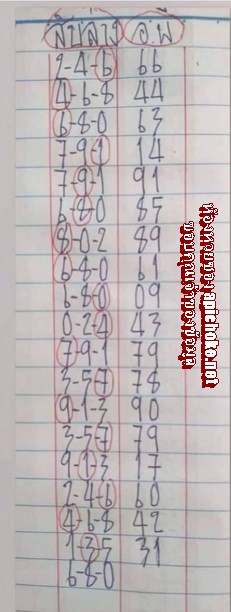 สิบล่าง อ.พ
2-4-6 66
4-6-8 44
6-8-0 63
7-9-1 14
7-9-1 91
6-8-0 85
8-0-2 89
6-8-0 61
6-8-0 09
0-2-4 43
7-9-1 79
3-5-7 78
9-1-3 90
3-5-7 79
9-1-3 17
2-4-6 60
4-6-8 42
1-3-5 31
6-8-0
apichoke.net